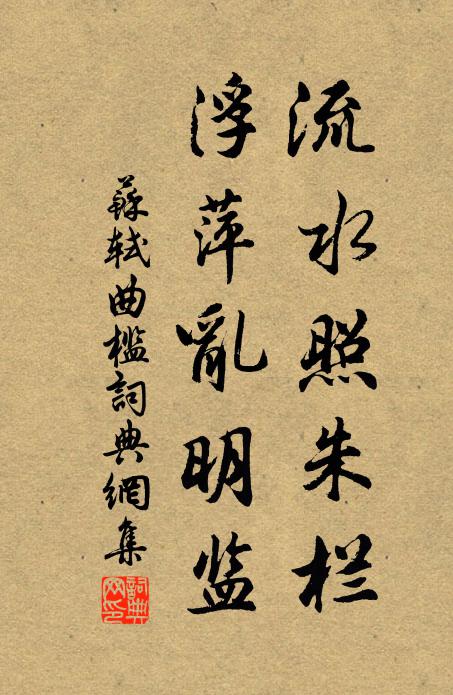 流水照朱栏
浮萍亂明监
蘇軾曲槛詞典網集
詞典網印